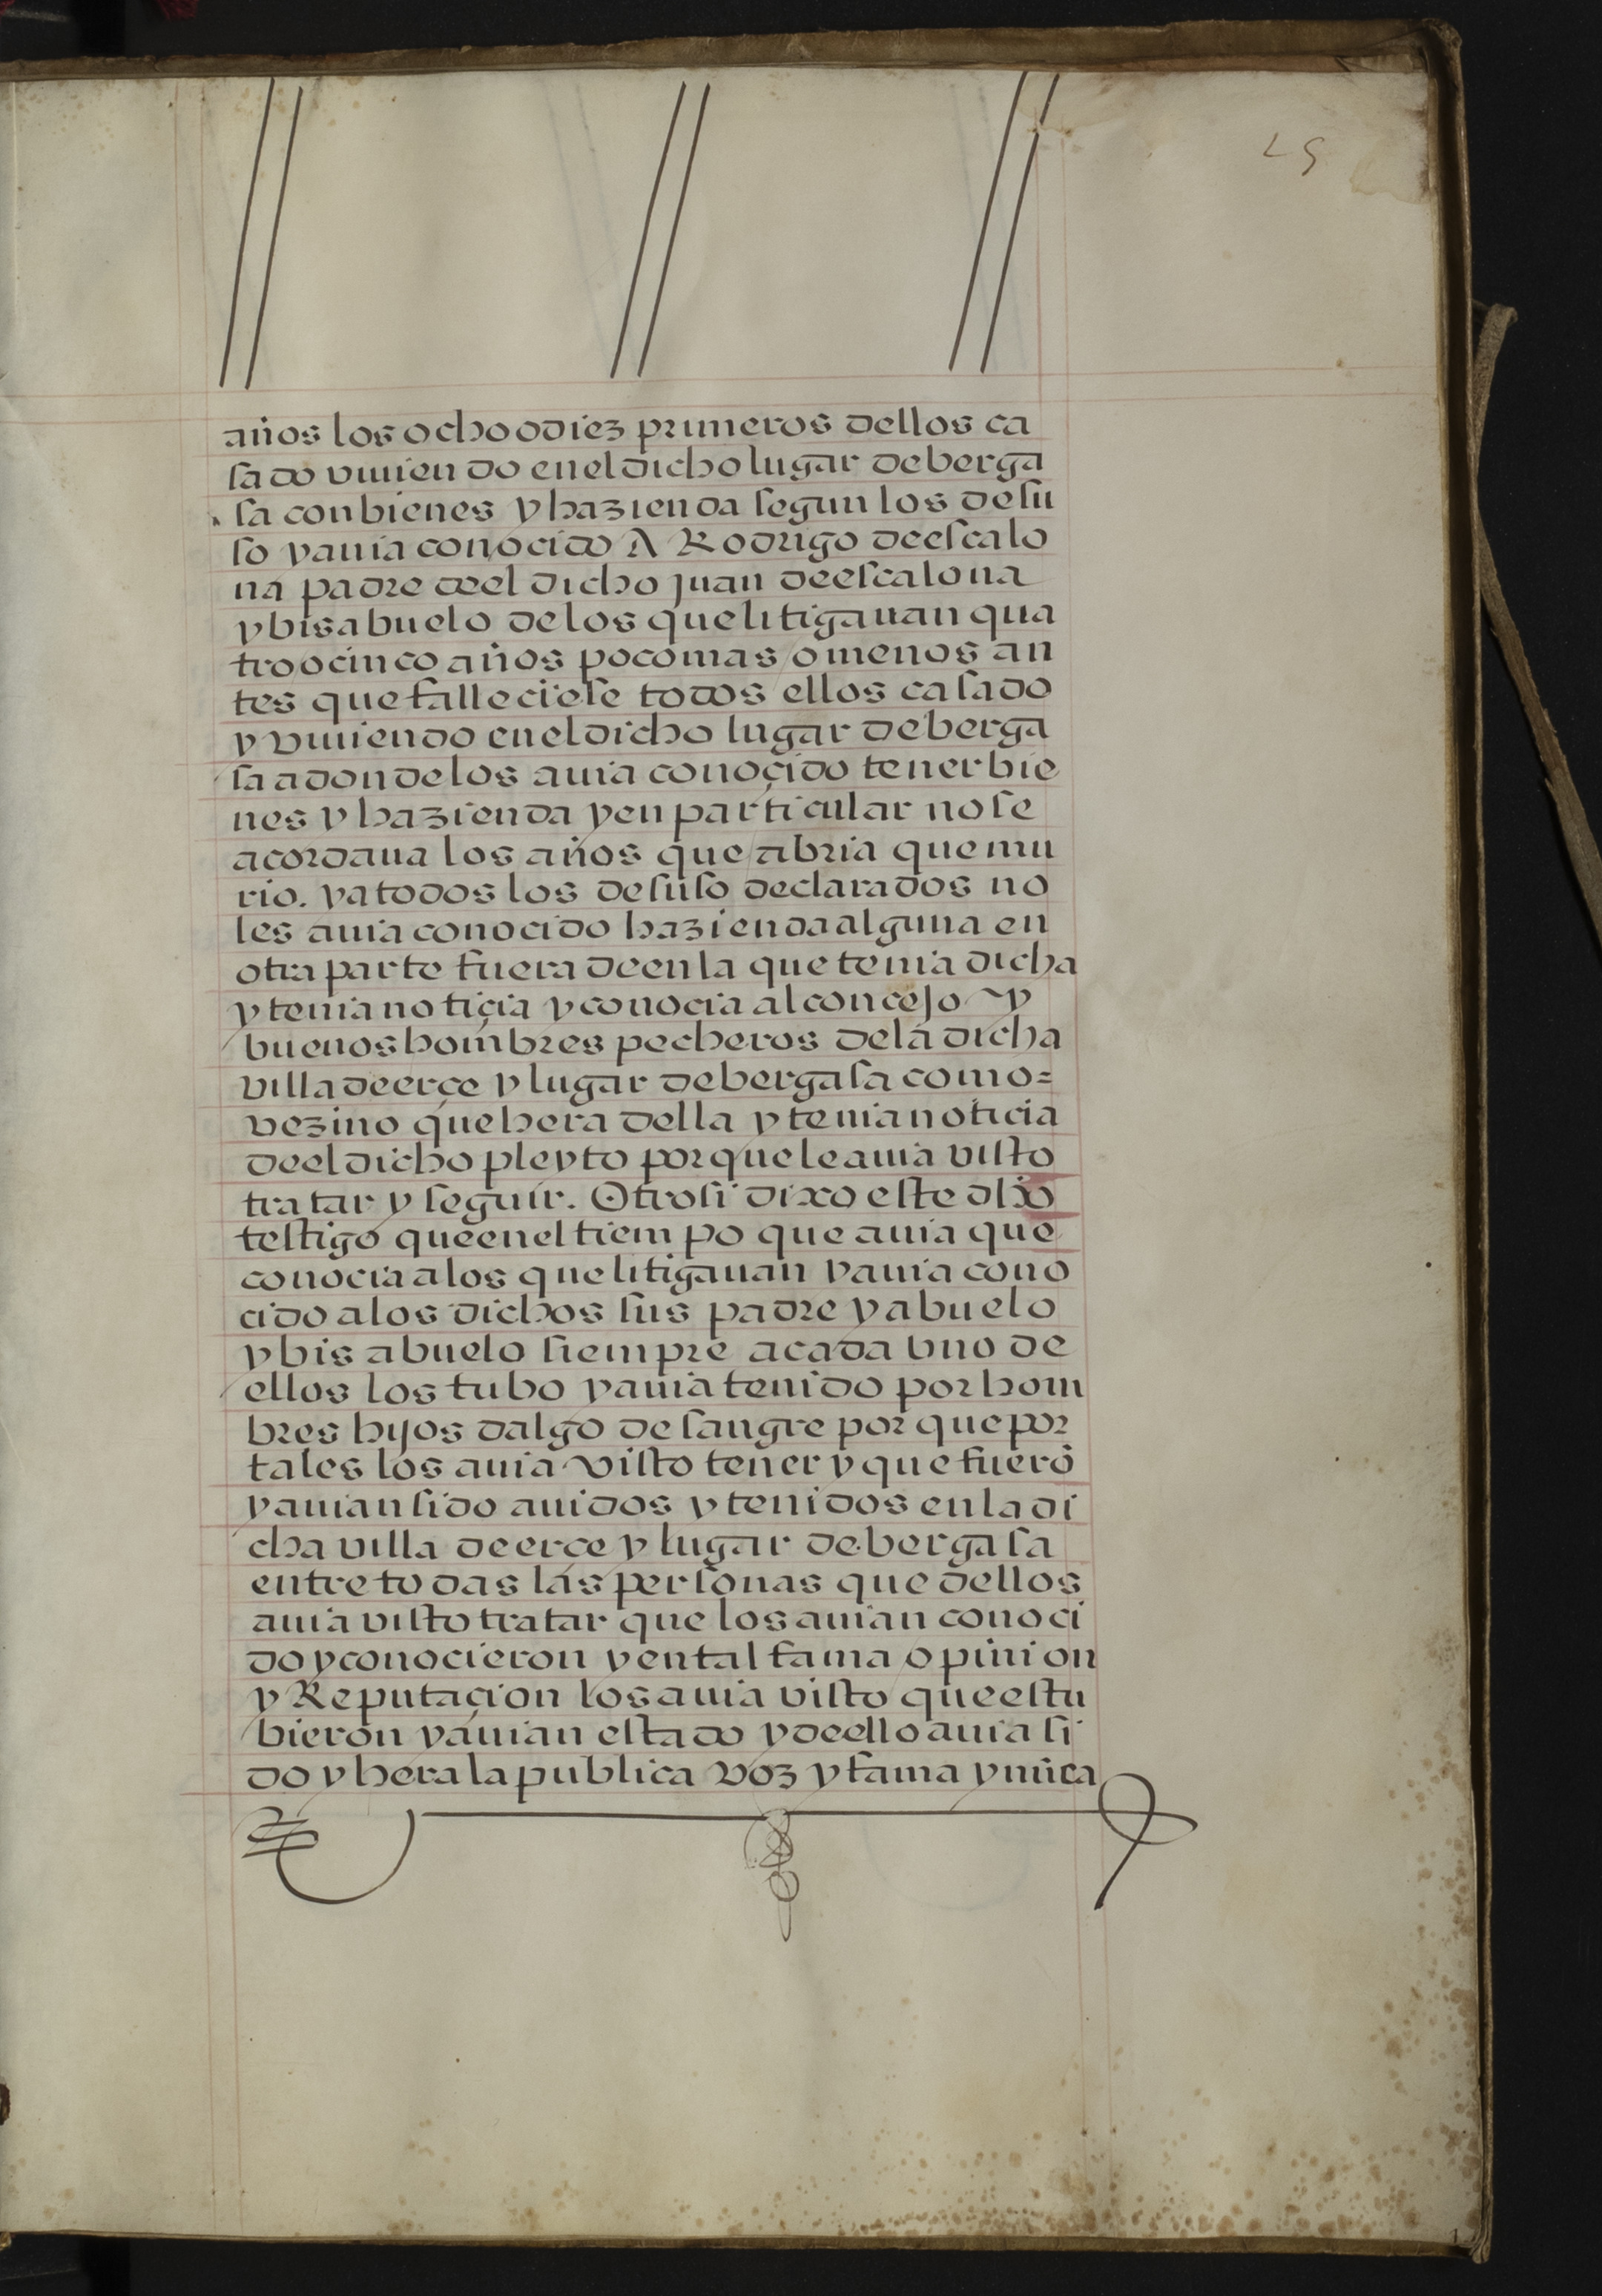 25
años los ocho o diez primeros dellos ca
sado viuiendo en el dicho lugar de berga
sa con bienes y hazienda segun los desu
so y auia conocido A Rodrigo de escalo
na padre de el dicho juan de escalona
y bisabuelo de los que litigauan qua
tro o cinco años poco mas o menos an
tes que falleciese todos ellos casado
y viuiendo en el dicho lugar de berga
sa adonde los auia conoçido tener bie
nes y hazienda y en particular no se
acordaua los años que abria que mu
rio. y a todos los desuso declarados no
les auia conocido hazienda alguna en
otra parte fuera de en la que tenia dicha
y tenia notiçia y conocia al concejo y
buenos hombres pecheros de la dicha
villa de erçe y lugar de bergasa como=
vezino que hera della y tenia noticia
de el dicho pleyto porque le auia visto
tratar y seguir. Otrosi dixo este dho
testigo que en el tiempo que auia que
conocia a los que litigauan y auia cono
cido a los dichos sus padre y abuelo
y bisabuelo siempre a cada vno de
ellos los tubo y auia tenido por hom
bres hijos dalgo de sangre por que por
tales los auia visto tener y que fuerõ
y auian sido auidos y tenidos en la di
cha villa de erce y lugar de bergasa
entre todas las personas que dellos
auia visto tratar que los auian conoci
do y conocieron y en tal fama opinion
y Reputaçion los auia visto que estu
bieron y auian estado y de ello auia si
do y hera la publica voz y fama y nũca